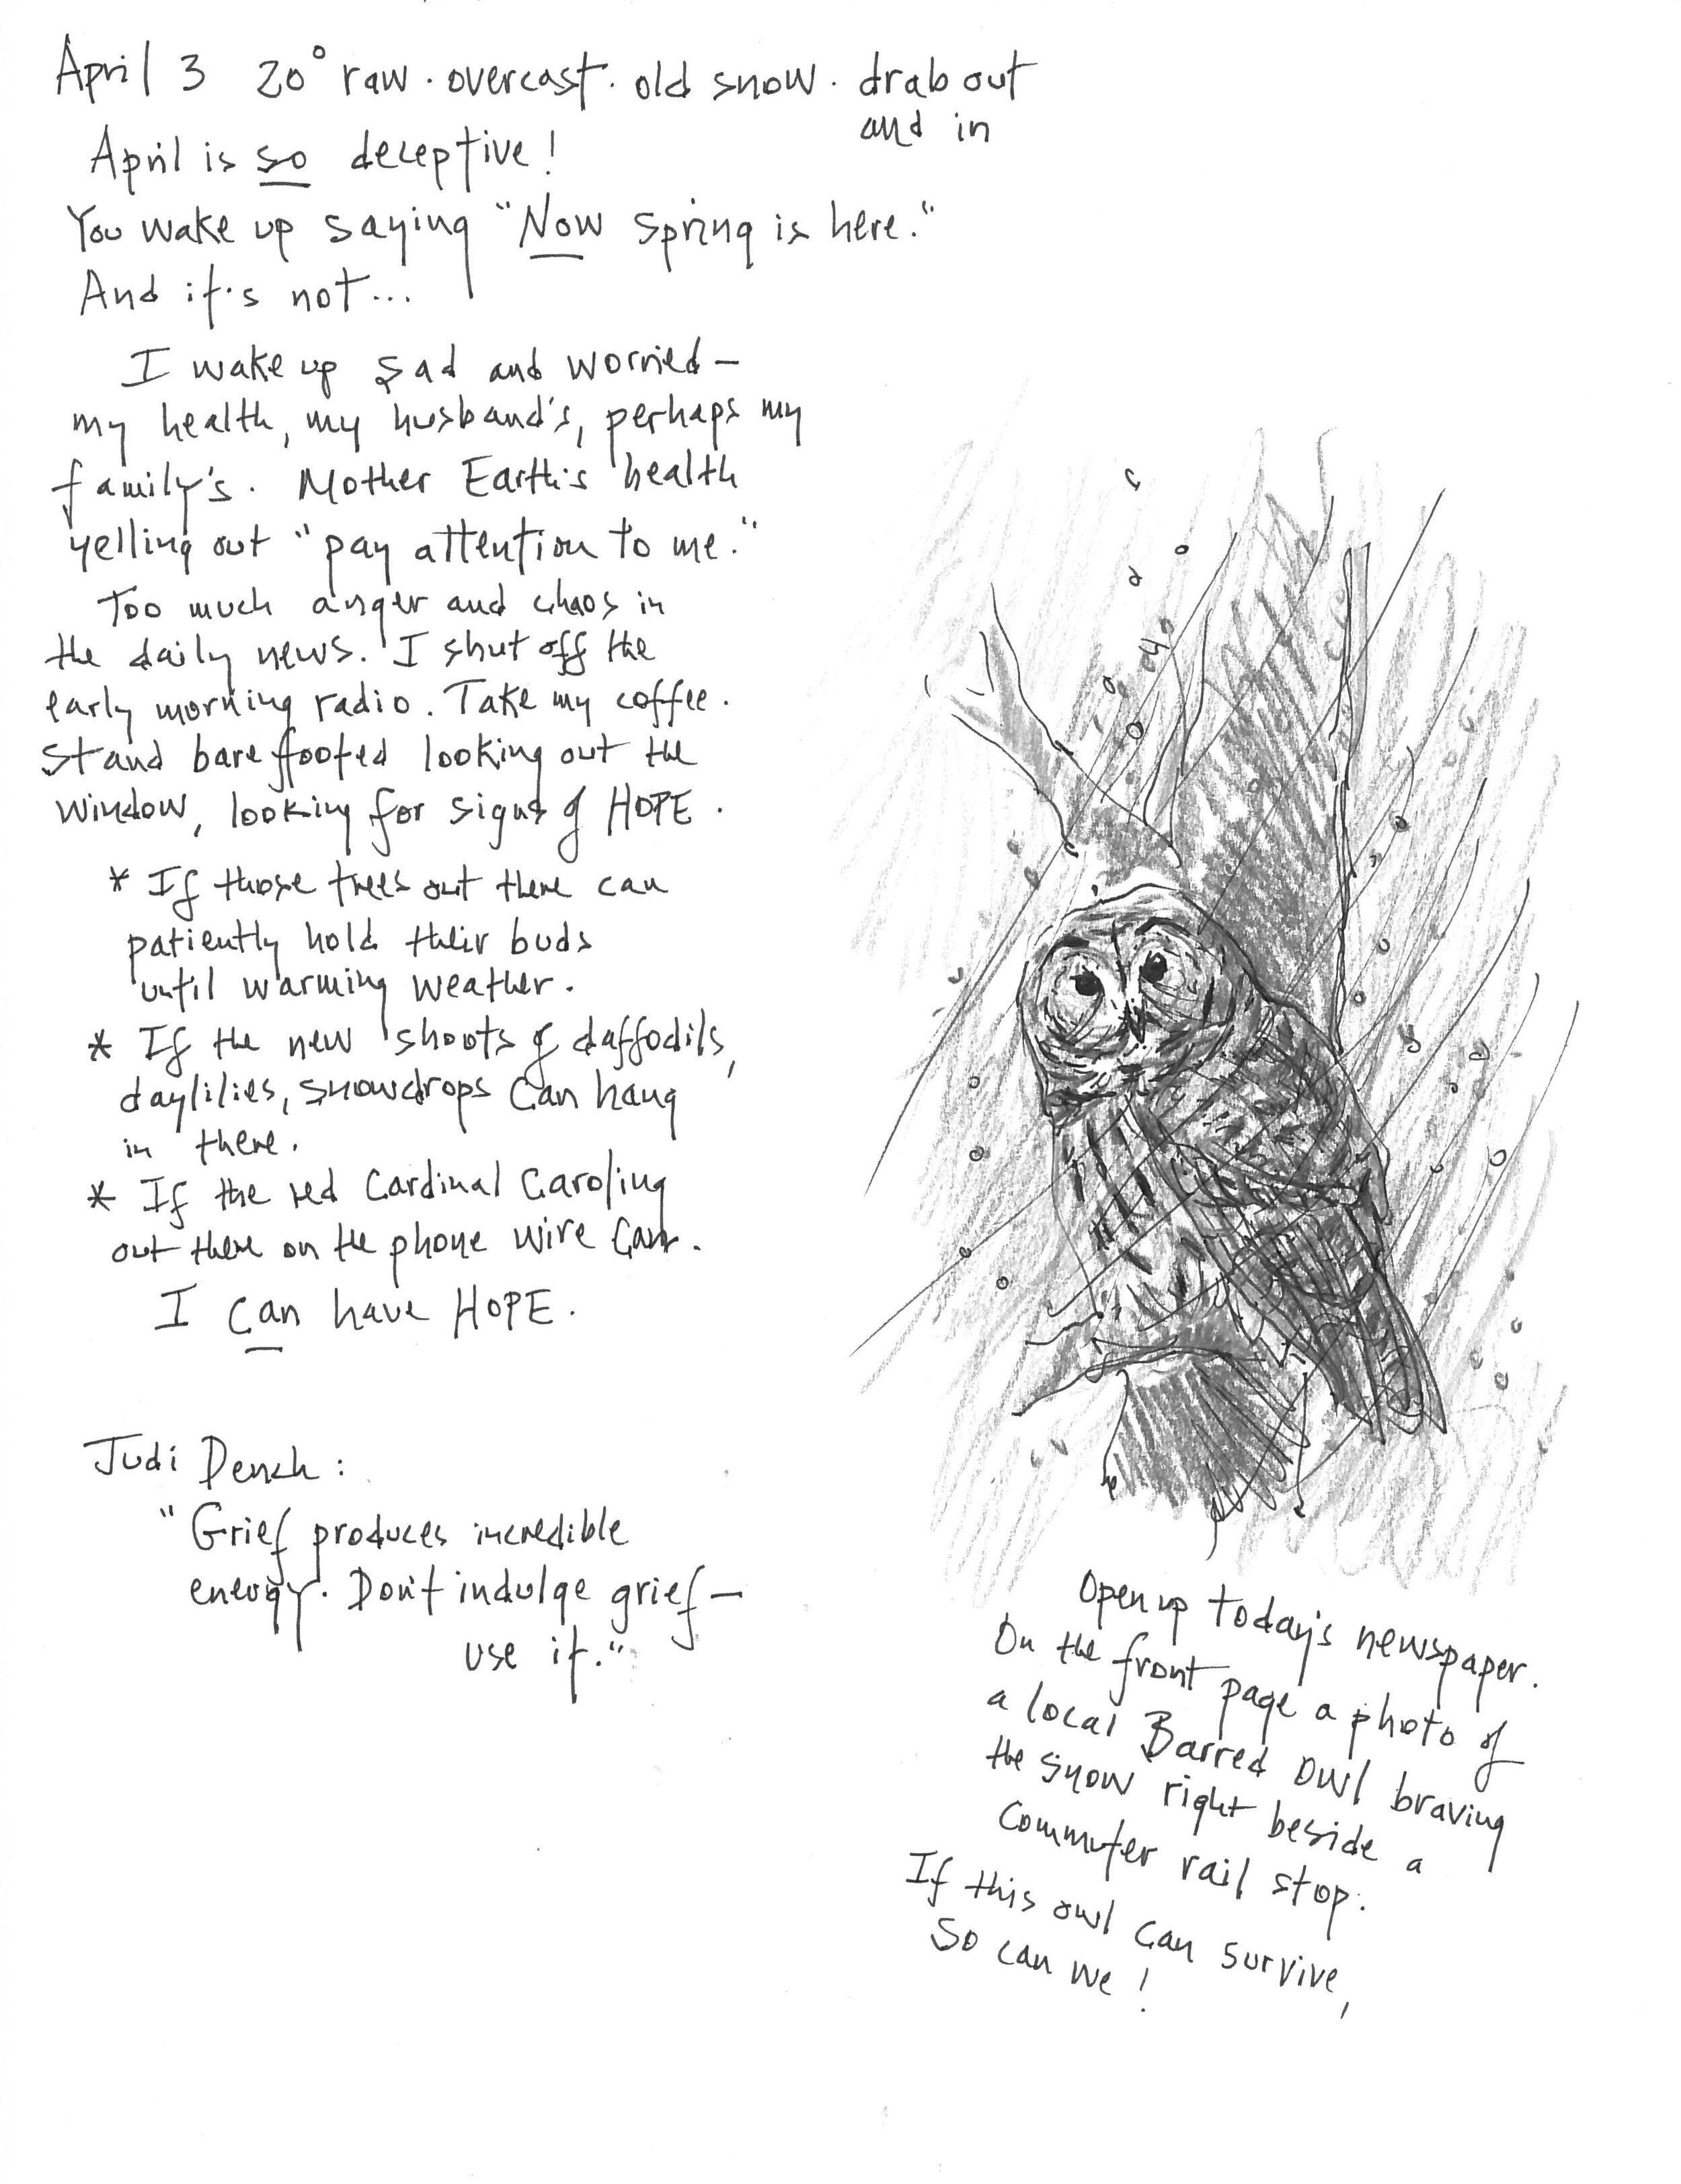 April 3 20° raw · overcast · old snow · drab out
and in
April is so deceptive!
You wake up saying "Now spring is here."
And it's not...
I wake up sad and worried –
my health, my husband's, perhaps my
family's. Mother Earth's health
yelling out "pay attention to me."
Too much anger and chaos in
the daily news. I shut off the
early morning radio. Take my coffee.
Stand barefooted looking out the
window, looking for signs of HOPE.
* If those trees out there can
patiently hold their buds
until warming weather.
* If the new shoots of daffodils,
daylilies, snowdrops can hang
in there.
* If the red Cardinal Caroling
out there on the phone wire can.
I can have HOPE.
Judi Dench:
"Grief produces incredible
energy. Don't indulge grief –
use it."
Open up today's newspaper.
On the front page a photo of
a local Barred Owl braving
the snow right beside a
Commuter rail stop.
If this owl can survive,
So can we!